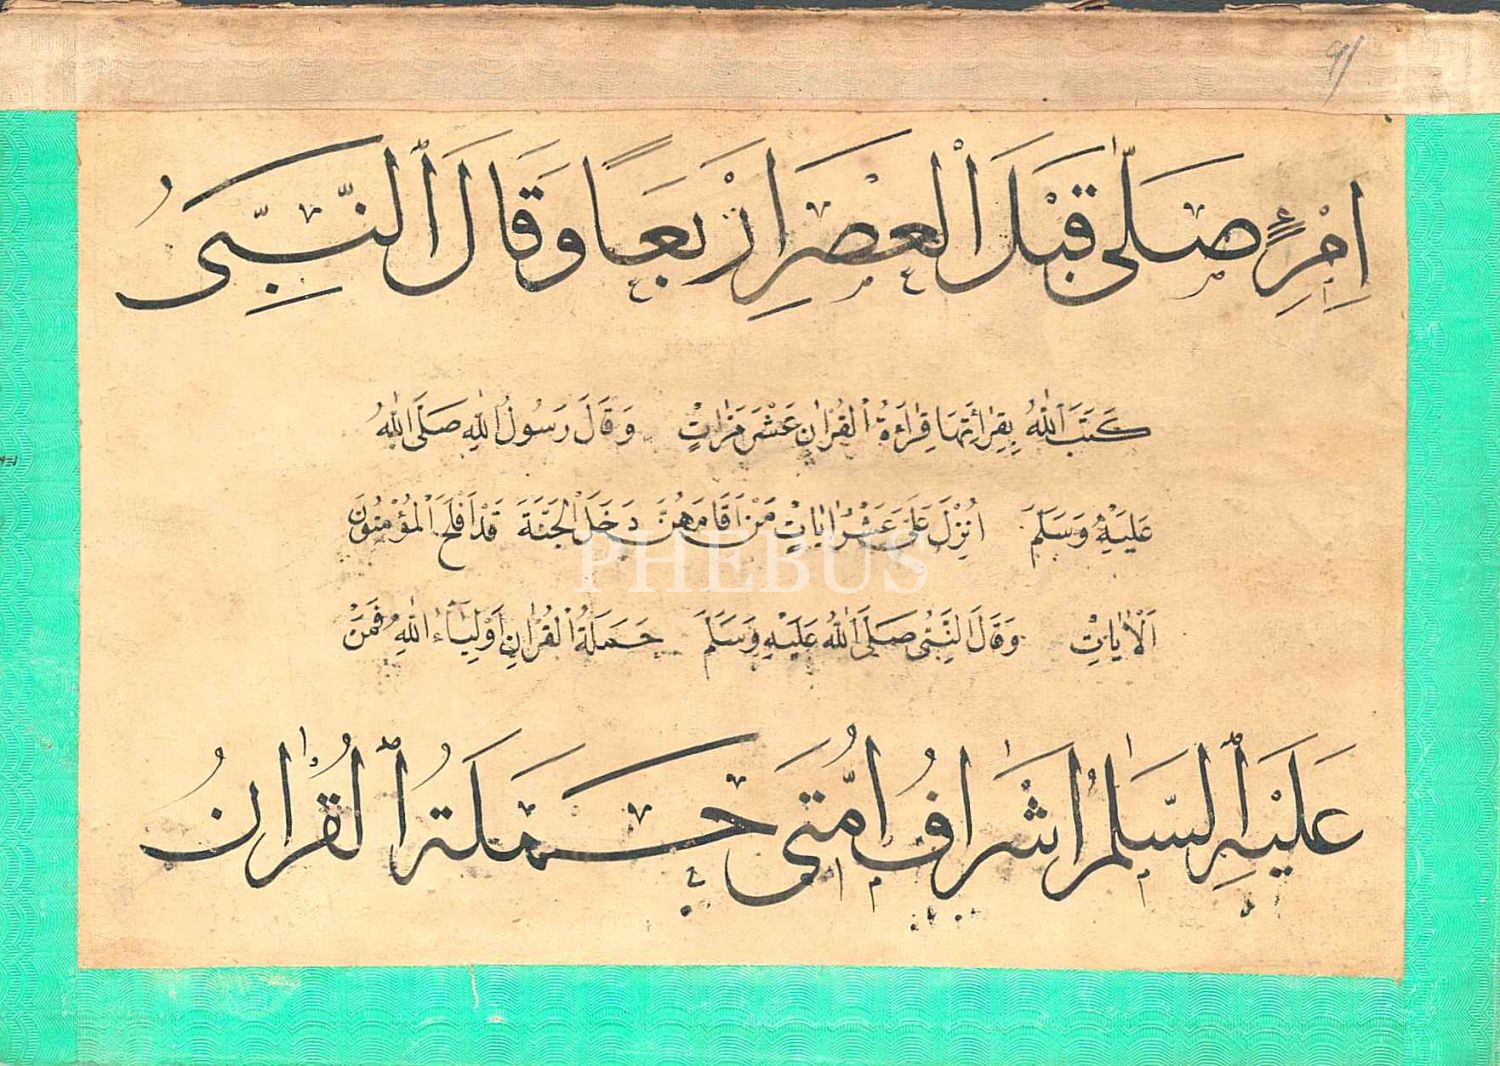 ٩١
اِمْرِءٍ صَلّٰى قَبْلَ الْعَصْرِ اَرْبَعًا وَقَالَ النَّبِىُّ
كَتَبَ اللّٰهُ بِقِرٰائَتِهَا قِرٰاءَةَ الْقُرْاٰنِ عَشْرَ مَرّٰاتٍ وَقَالَ رَسُولُ اللّٰهِ صَلَّى اللّٰهُ
عَلَيْهِ وَسَلَّمَ اُنْزِلَ عَلَىَّ عَشْرُ اٰيَاتٍ مَنْ اَقَامَهُنَّ دَخَلَ الْجَنَّةَ قَدْ اَفْلَحَ الْمُؤْمِنُونَ
اَلْاٰيَاتِ وَقَالَ النَّبِىُّ صَلَّى اللّٰهُ عَلَيْهِ وَسَلَّمَ حَمَلَةُ الْقُرْاٰنِ اَوْلِيَٓاءُ اللّٰهِ فَمَنْ
PHEBUS
عَلَيْهِ السَّلٰمُ اَشْرَافُ اُمَّتِى حَمَلَةُ الْقُرْاٰنِ